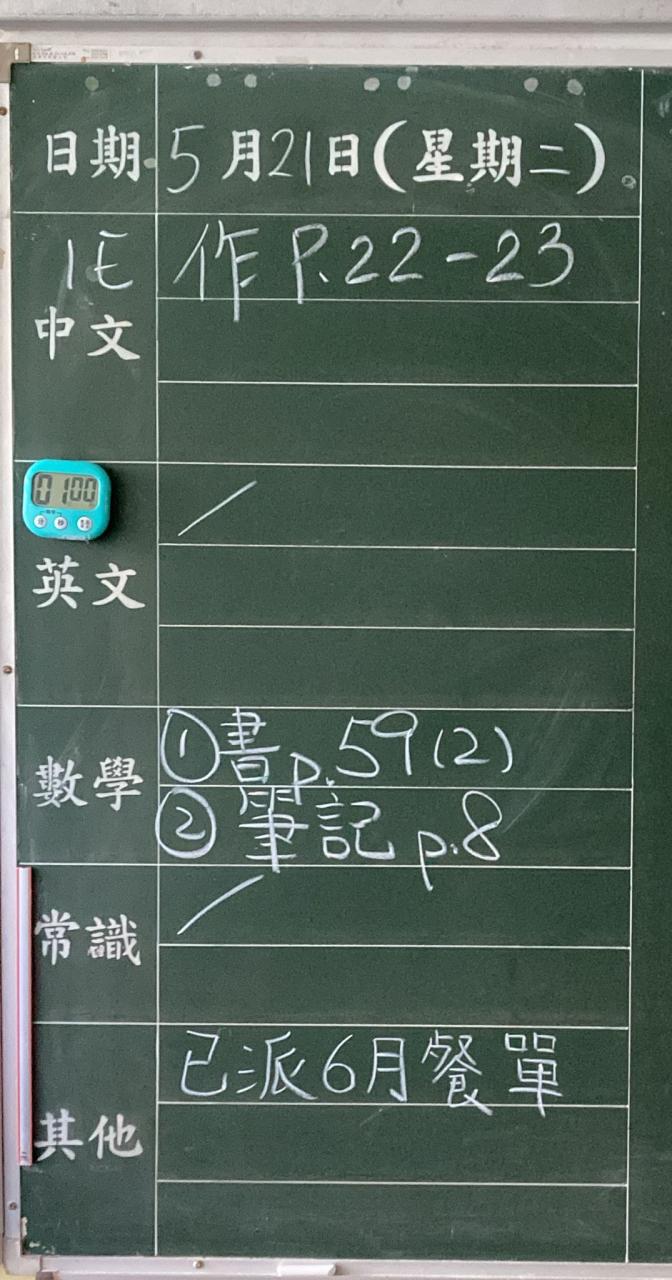 日期 5月21日(星期二)
1E 作 P.22-23
中文
01 00
英文
數學
①書 p.59(2)
②筆記 p.8
常識
已派6月餐單
其他